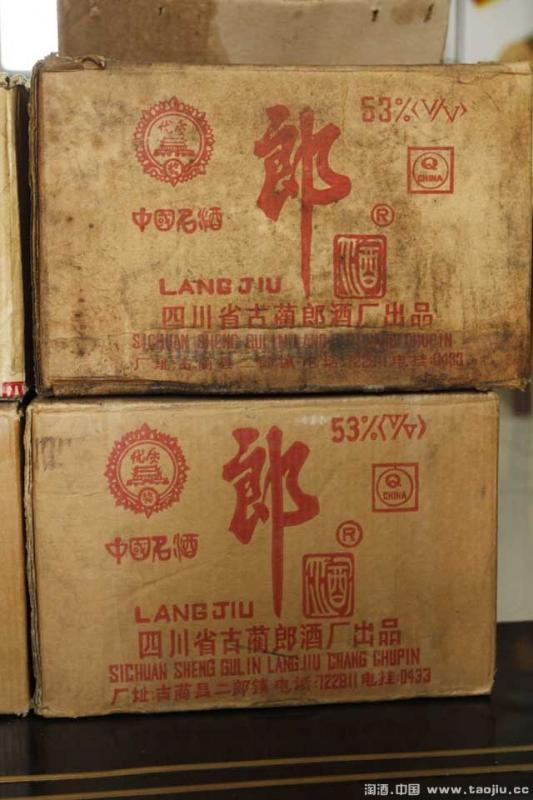 53%<V/V>
优质
奖
郎
Q
CHINA
中國名酒
®
酒
LANG JIU
四川省古蔺郎酒厂出品
SICHUAN SHENG GULIN LANG CHUPIN
厂址:古蔺县二郎镇 电话:722811 电挂:0433
53%<V/V>
优质
奖
郎
Q
CHINA
中國名酒
®
酒
LANG JIU
四川省古蔺郎酒厂出品
SICHUAN SHENG GULIN LANG JIU CHANG CHUPIN
厂址:古蔺县二郎镇 电话:722811 电挂:0433
淘酒.中国 www.taojiu.cc